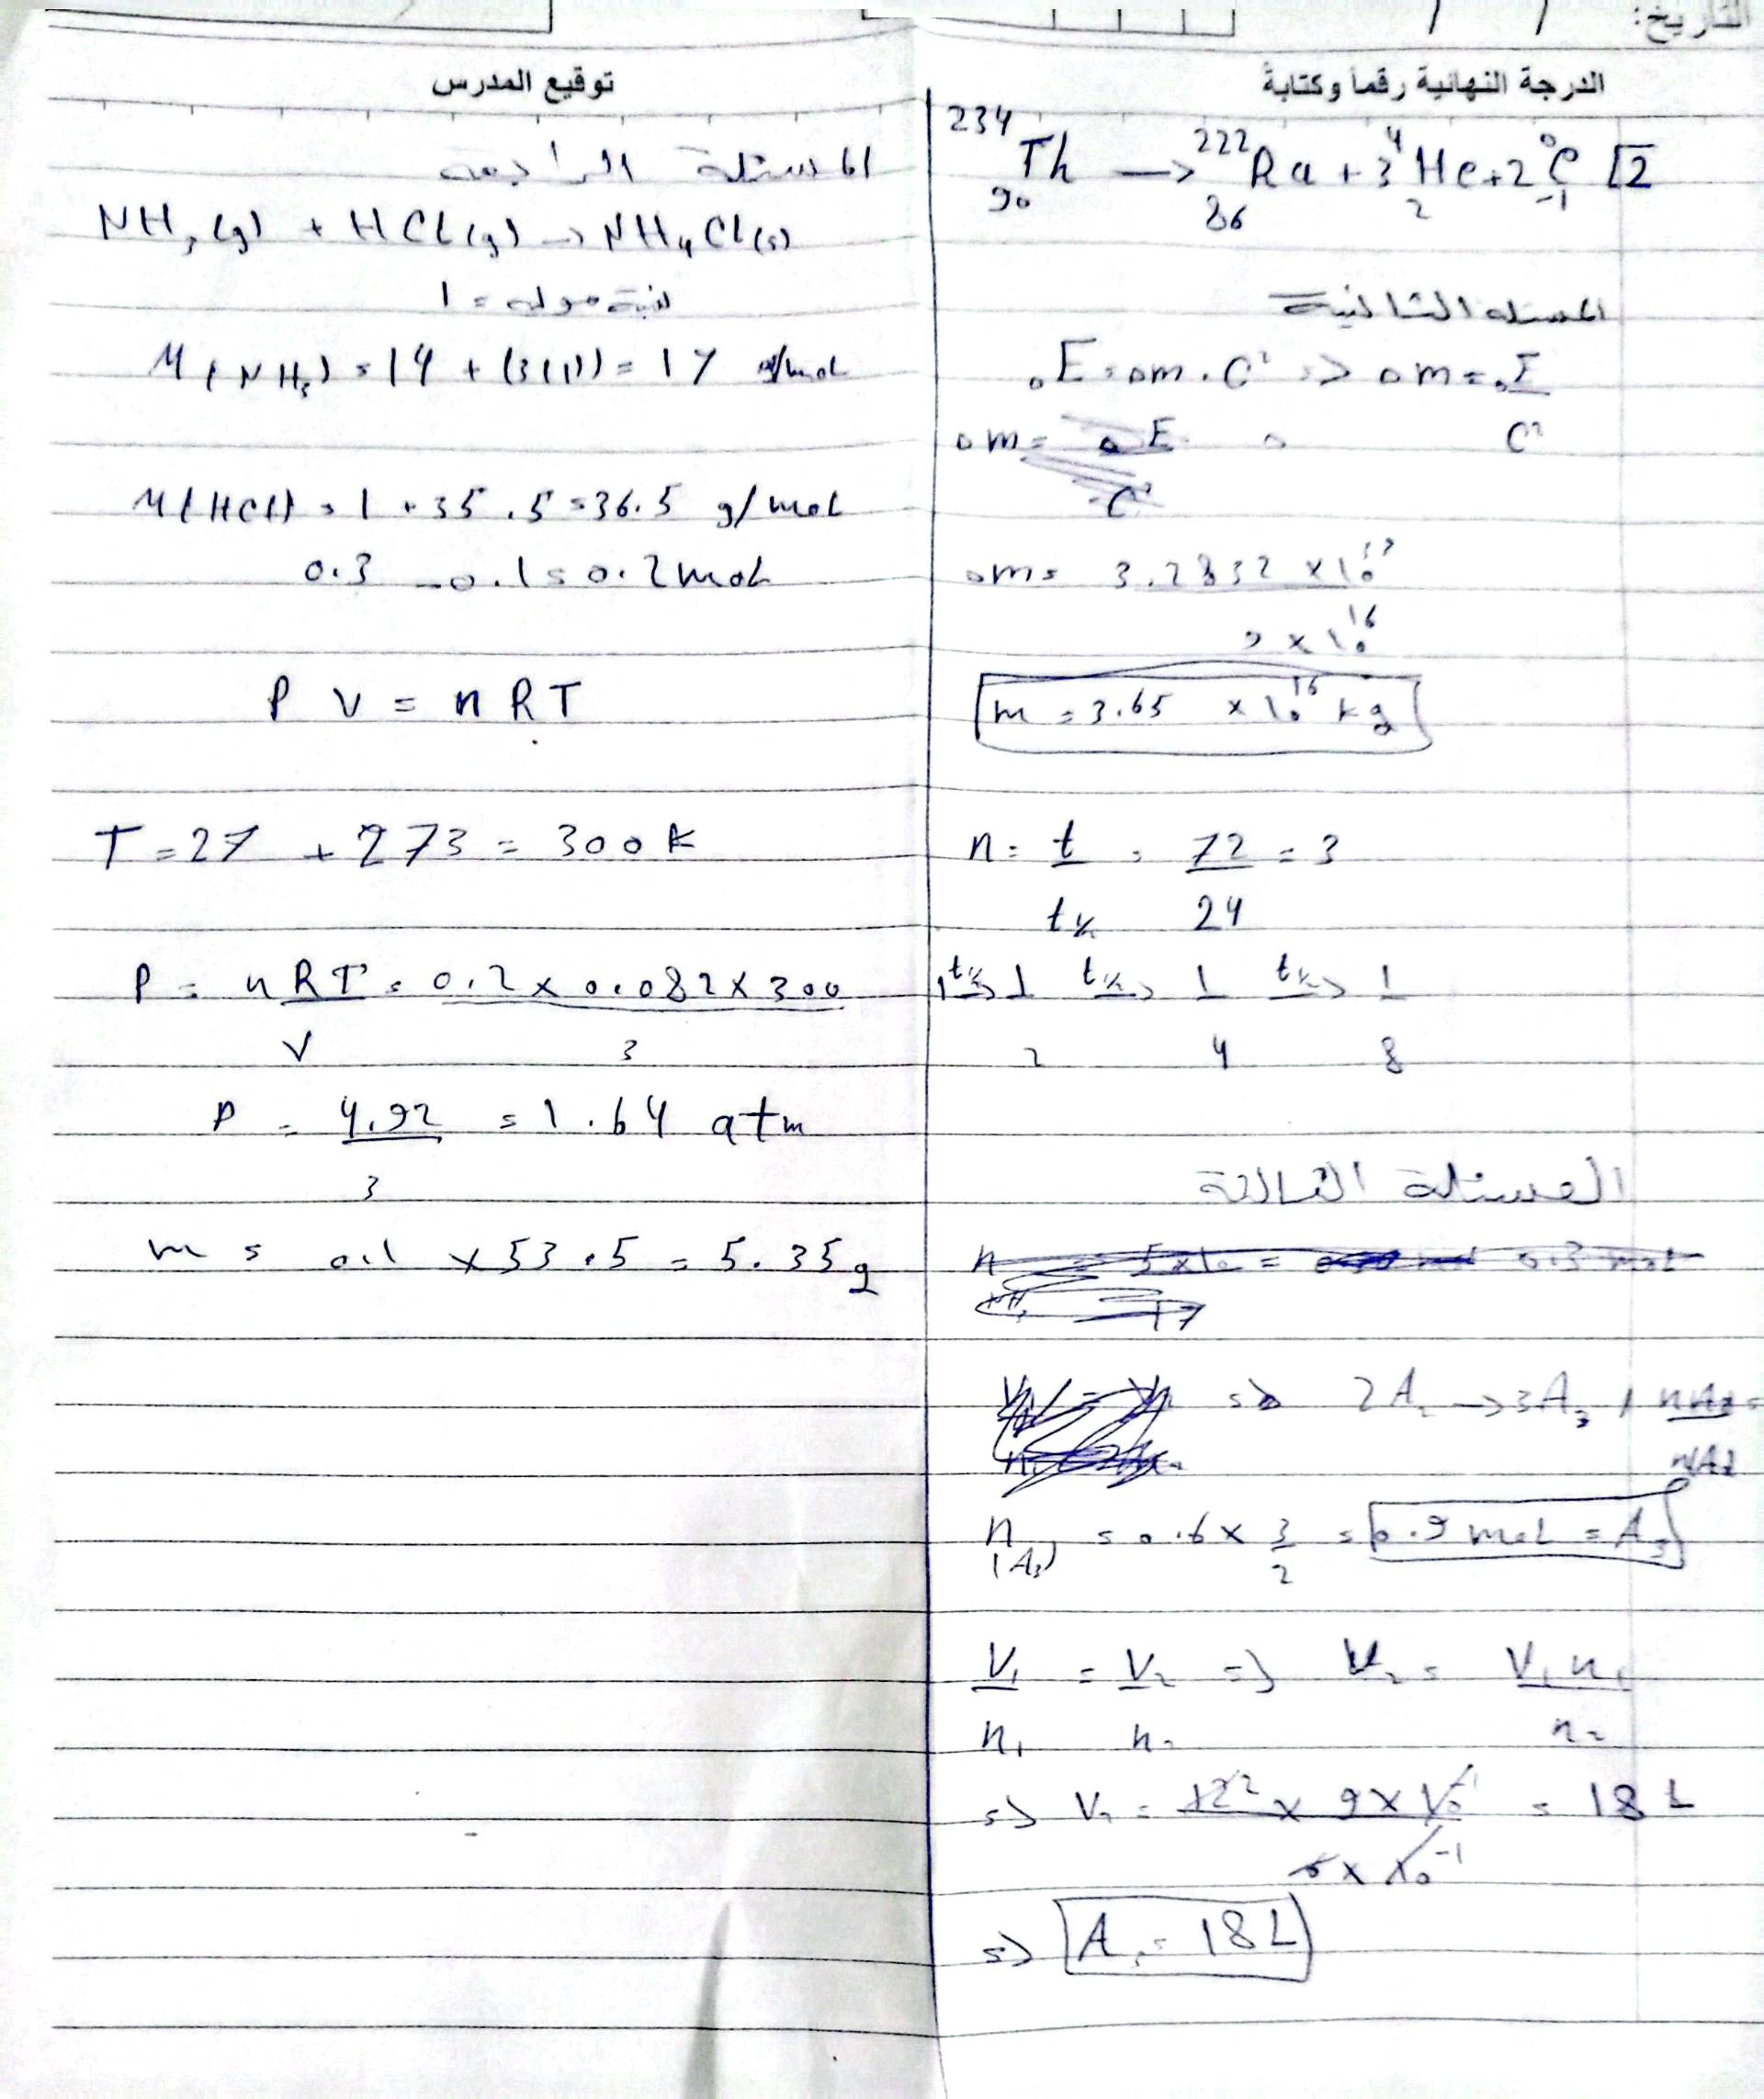 التاريخ: / /
الدرجة النهائية رقماً وكتابةً
2 ²³⁴₉₀Th → ²²²₈₆Ra + 3 ⁴₂He + 2 ⁰₋₁e
المسئله الثانية
ΔE = Δm . C² => Δm = ΔE / C²
Δm = ΔE / C²
Δm = 3.2832 × 10³³
9 × 10¹⁶
m = 3.65 × 10¹⁶ kg
n = t / t½ = 72 / 24 = 3
1 t½→ 1/2 t½→ 1/4 t½→ 1/8
المسئلة الثالثة
=> 2A₂ → 3A₃
n(A₃) = 0.6 × 3/2 = 0.9 mol = A₃
V₁/n₁ = V₂/n₂ => V₂ = V₁ n₁ / n₂
=> V₂ = 12² × 9 × 10⁻¹ / 6 × 10⁻¹ = 18 L
=> A₃ = 18 L
توقيع المدرس
المسئلة الرابعه
NH₃(g) + HCl(g) → NH₄Cl(s)
نسبة موليه = 1
M(NH₃) = 14 + (3(1)) = 17 g/mol
M(HCl) = 1 + 35.5 = 36.5 g/mol
0.3 - 0.1 = 0.2 mol
P V = n R T
T = 27 + 273 = 300 K
P = nRT / V = 0.2 × 0.082 × 300 / 3
P = 4.92 / 3 = 1.64 atm
m = 0.1 × 53.5 = 5.35 g